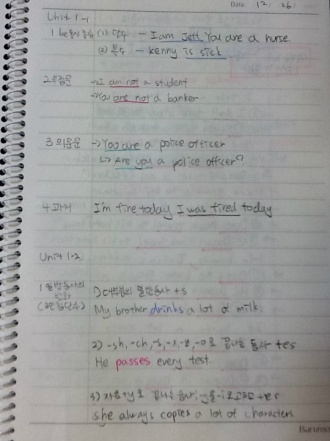 Date 12. 26
Unit 1-1
1 be동사 (1) 단수 - I am Jeff You are a nurse
(2) 복수 - kenny is sick
2 부정문 → I am not a student
→ You are not a banker
3 의문문 → You are a police officer
↳ Are you a police officer?
4 과거 I'm tire today I was tired today
Unit 1-2
1 일반동사의 1) 대부분의 일반동사 +s
(3인칭단수) My brother drinks a lot of milk.
2) -sh, -ch, -s, -x, -z, -o로 끝나는 동사 +es
He passes every test.
3) 자음+y로 끝나는 동사: y를 i로 +es
she always copies a lot of characters